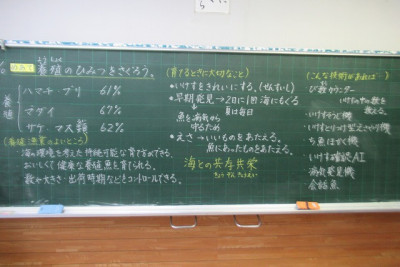 養殖のひみつをさぐろう。
ようしょく
養殖
ハマチ・ブリ 61%
マダイ 67%
サケ・マス類 62%
(養殖漁業のよいところ)
海の環境を考えた持続可能な育て方ができる。
おいしくて健康な養殖魚を育てられる。
数や大きさ・出荷時期などをコントロールできる。
(育てるときに大切なこと)
・いけすをきれいにする。
・早期発見→2日に1回海にもぐる
夏は毎日
↓
魚を病気から
守るため
・えさ→いいものをあたえる。
魚にあったものをあたえる。
海との共存共栄
きょうぞんきょうえい
(こんな技術があれば…)
び数カウンター
いけすの中の数を
数える。
ち魚ほかく機
いけす確認AI
病気発見機
会話魚